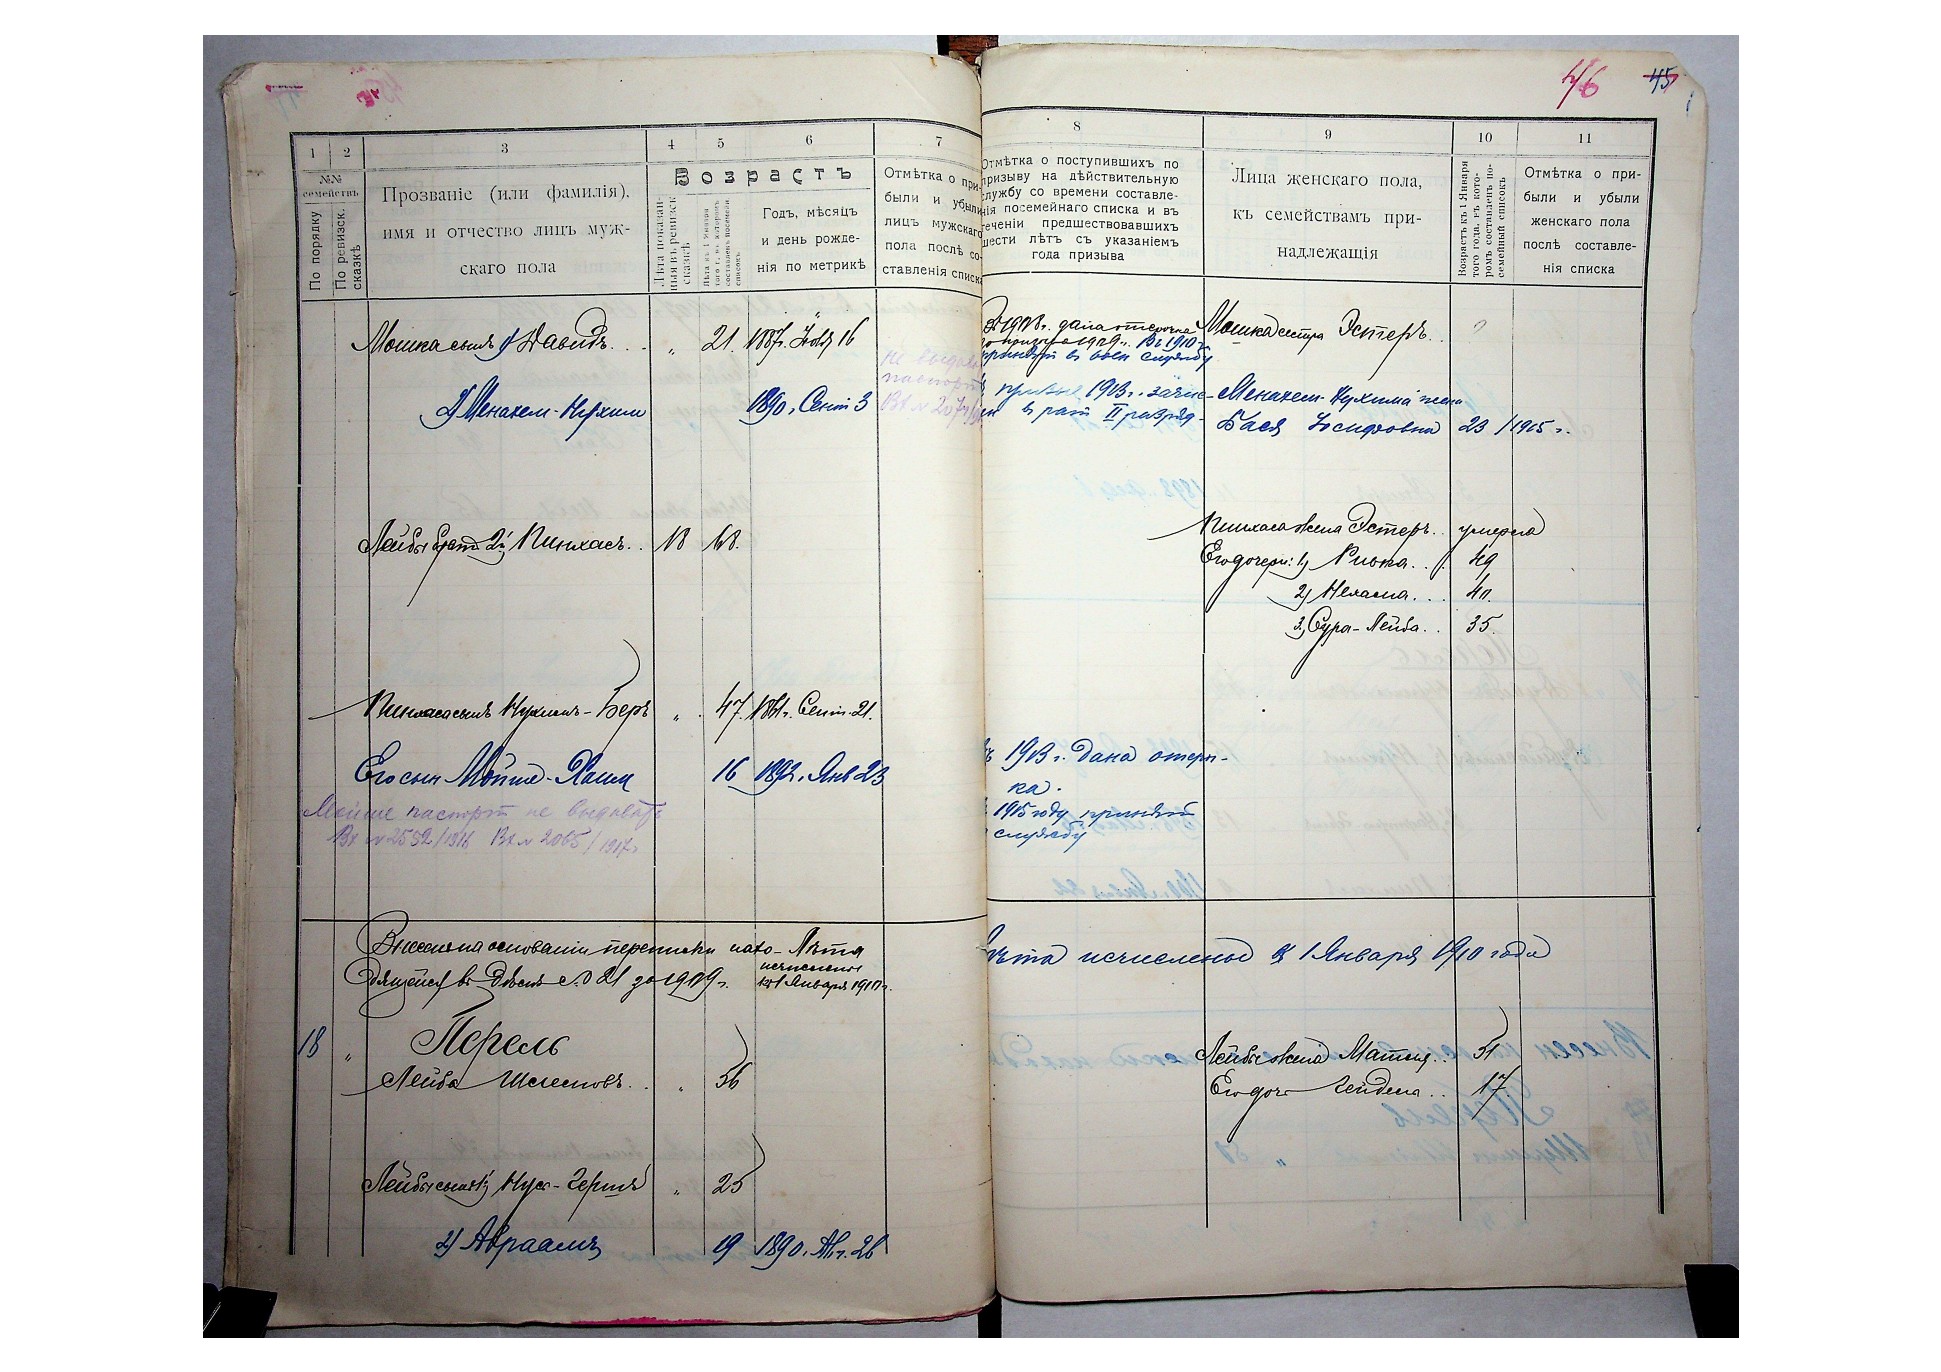 46 45
1 2 3 4 5 6 7 8 9 10 11
№№ семействъ
По порядку
По ревизск. сказкѣ
Прозваніе (или фамилія),
имя и отчество лицъ муж-
скаго пола
Возрастъ
Лѣта показан-
ныя въ ревизск
сказкѣ.
Годъ, мѣсяцъ
и день рожде-
нія по метрикѣ
Отмѣтка о при-
были и убыли
лицъ мужскаго
пола послѣ со-
ставленія списка
Отмѣтка о поступившихъ по
призыву на дѣйствительную
службу со времени составле-
нія посемейнаго списка и въ
теченіи предшествовавшихъ
шести лѣтъ съ указаніемъ
года призыва
Лица женскаго пола,
къ семействамъ при-
надлежащія
Возрастъ къ 1 Января
того года, въ кото-
ромъ составленъ по-
семейный списокъ
Отмѣтка о при-
были и убыли
женскаго пола
послѣ составле-
нія списка
Мошка сынъ 1) Давидъ . . „ 21. 1887г. Іюля 16
Въ 1908г. дана отсрочка
до призыва 1909г. Въ 1910г.
принятъ въ воен службу
Мошка сестра Эстеръ . .
2) Менахем-Нухим 1890г. Сент 3
не выдава
паспорт
призыве 1913г. зачис-
в рат II разряд-
Менахем-Нухима жена
Бася Іосифовна 23 / 1915 г.
Лейбы братъ 2й Пинхасъ . . 18 68.
Пинхаса жена Эстеръ . . умерла
Его дочери: 1) Ривка . . 49
2) Нехама . . . 40.
3) Сура-Лейба . . 35.
Пинхаса сынъ Нухимъ-Беръ „ 47. 1861г. Сент. 21.
Его сын Мойше-Хаим 16 1892г. Янв 23
1913г. дана отсроч-
ка.
1915 году принят
службу
Мойше паспорт не выдавать
Вх № 2552/1916 Вх № 2065/1917г
Внесена на основаніи переписки
въ Дѣлѣ за 1909г.
Лѣта
исчислены
къ 1 Января 1910г.
Лѣта исчислены къ 1 Января 1910 года
18 „ Перель
Лейба . . „ 56
Лейбы жена . . 51
Его дочь Гендля . . 17.
Лейбы сынъ 1) Нус-Гершъ „ 25
2) Авраамъ 19 1890г. Авг. 26